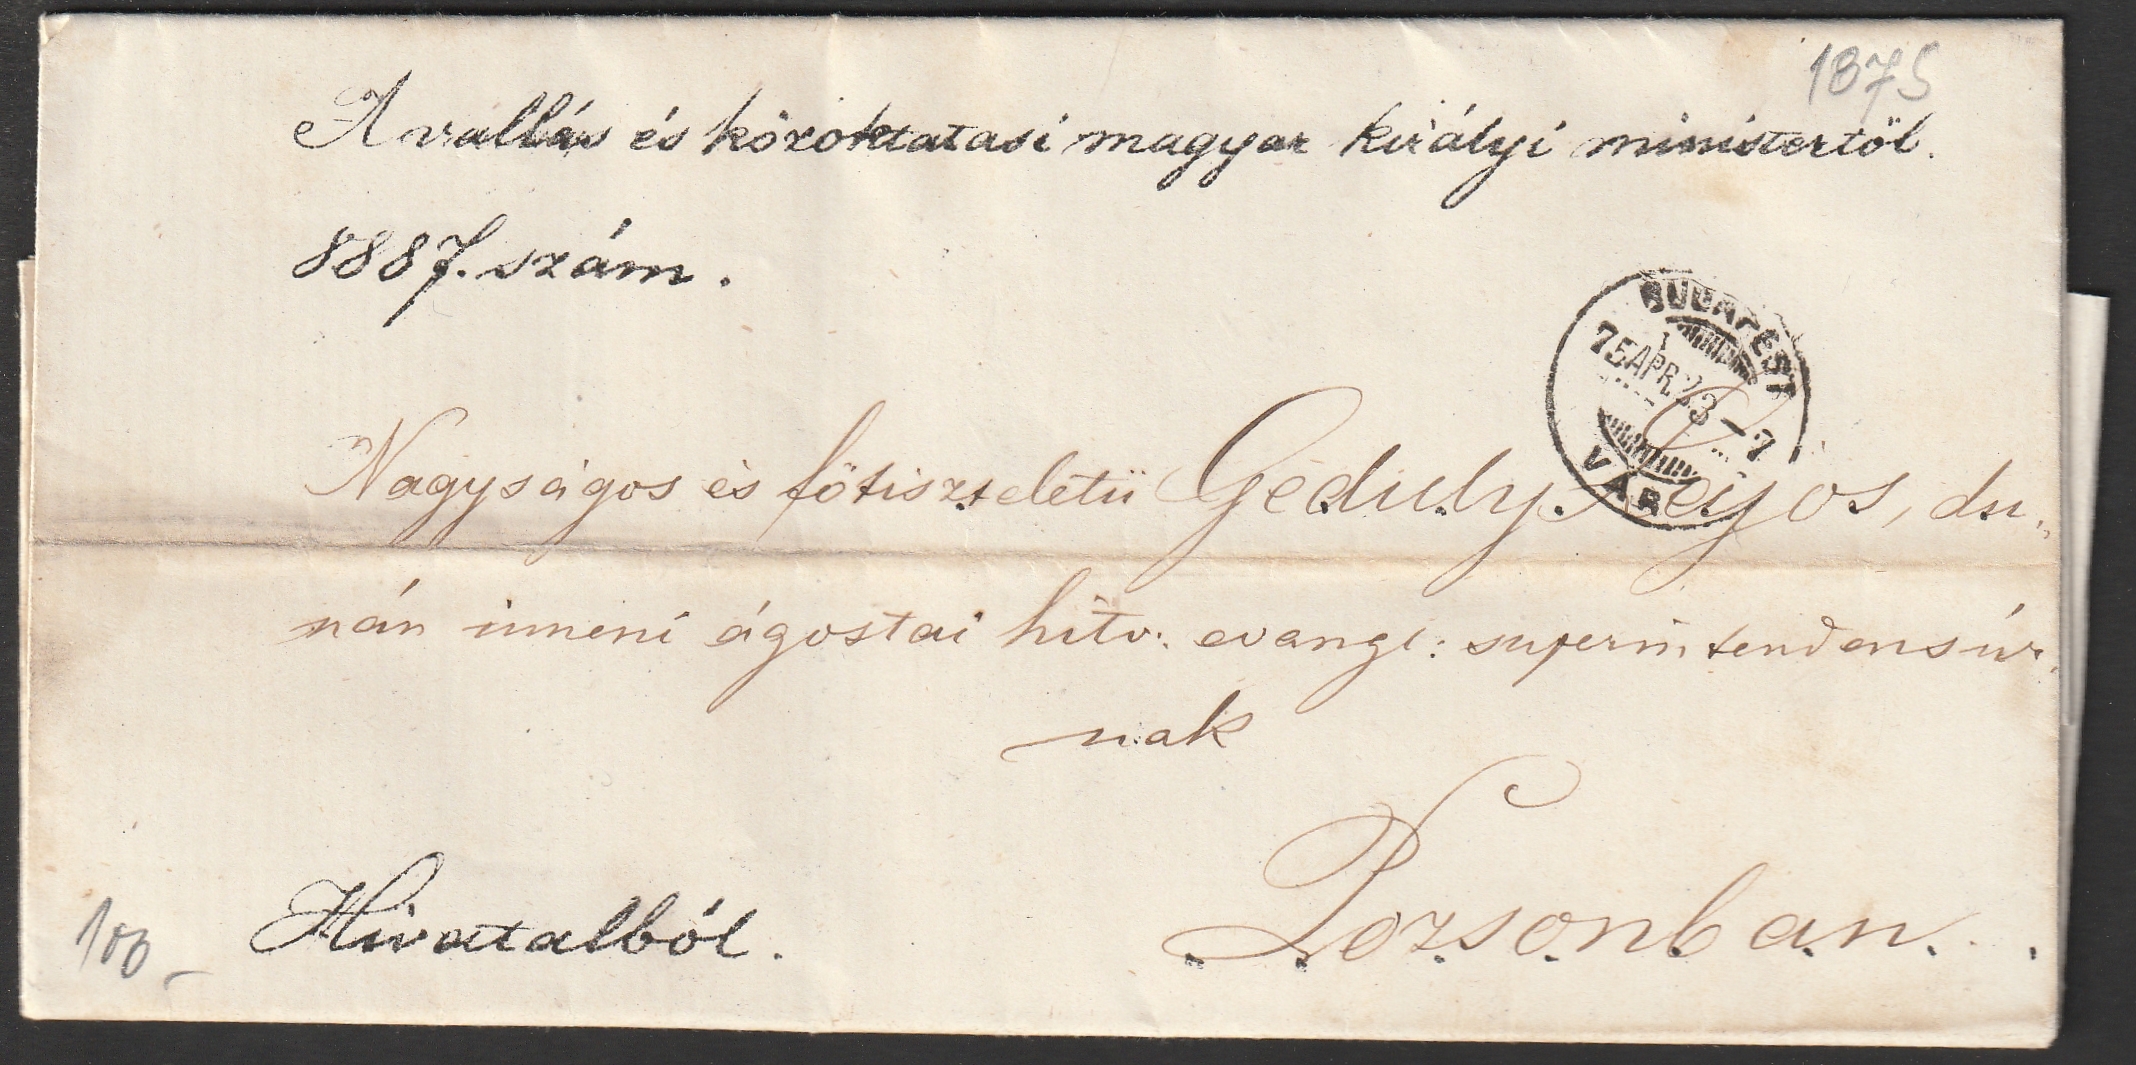 1875
A vallás és közoktatasi magyar királyi ministertöl.
8887. szám.
BUDAPEST
75 APR 23 - 7
VÁR
Nagyságos és fötisztelétü Géduly Lajos, du„
nán inneni ágostai hitv. evangl: superintendens úr„
nak
Hivatalból.
Pozsonban.
100 -